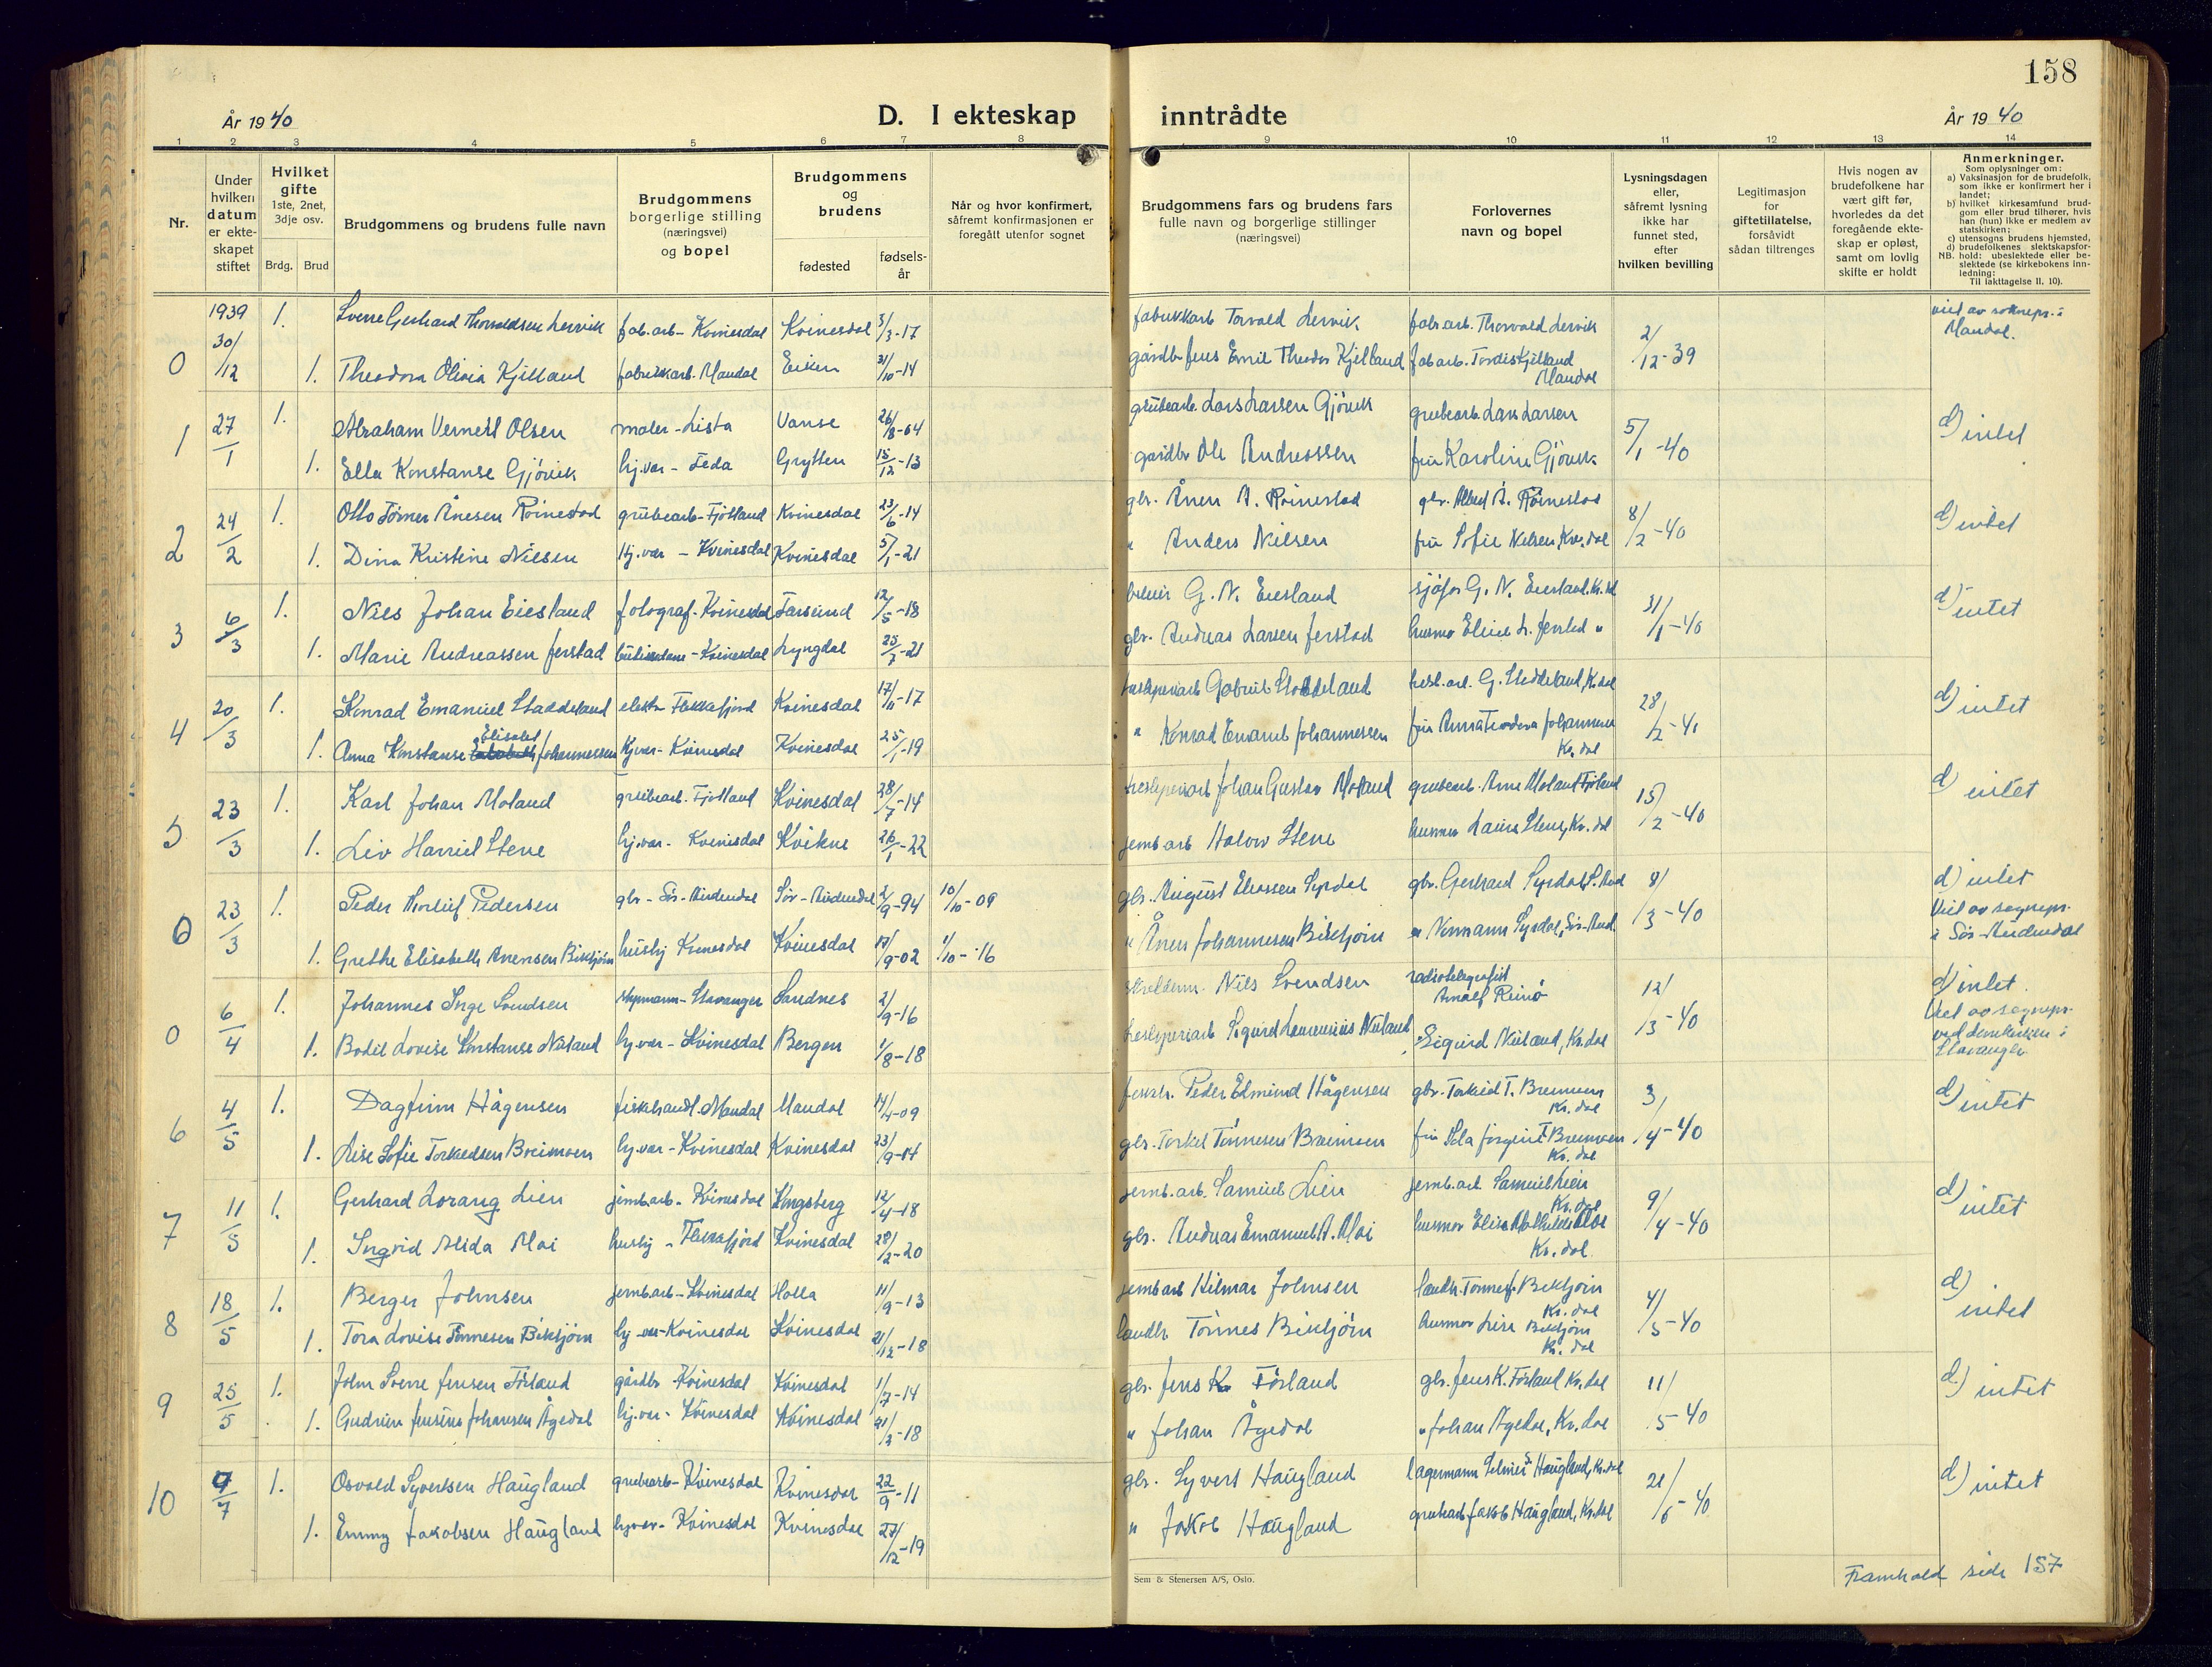 158
År 1940
D. I ekteskap inntrådte
År 1940
1 2 3 4 5 6 7 8 9 10 11 12 13 14
Nr.
Under hvilken datum er ekte-skapet stiftet
Hvilket gifte 1ste, 2net, 3dje osv.
Brdg. Brud
Brudgommens og brudens fulle navn
Brudgommens borgerlige stilling (næringsvei) og bopel
Brudgommens og brudens
fødested
fødsels-år
Når og hvor konfirmert, såfremt konfirmasjonen er foregått utenfor sognet
Brudgommens fars og brudens fars fulle navn og borgerlige stillinger (næringsvei)
Forlovernes navn og bopel
Lysningsdagen eller, såfremt lysning ikke har funnet sted, efter hvilken bevilling
Legitimasjon for giftetillatelse, forsåvidt sådan tiltrenges
Hvis nogen av brudefolkene har vært gift før, hvorledes da det foregående ekte-skap er opløst, samt om lovlig skifte er holdt
Anmerkninger.
Som oplysninger om:
a) Vaksinasjon for de brudefolk, som ikke er konfirmert her i landet;
b) hvilket kirkesamfund brud-gom eller brud tilhører, hvis han (hun) ikke er medlem av statskirken;
c) utensogns brudens hjemsted,
d) brudefolkenes slektskapsfor-hold: ubeslektede eller be-slektede (se kirkebokens inn-ledning:
NB.
Til iakttagelse II. 10).
0 1939 30/12 1. Sverre Gerhard Thorvaldsen Lervik fab.arb - Kvinesdal Kvinesdal 3/3-17 fabrikkarb Torvald Lervik fabr.arb. Thorvald Lervik 2/12-39 viet av soknepr. i Mandal.
1. Theodora Olivia Kjelland fabrikkarb. Mandal Eiken 31/10-14 gårdbr Jens Emil Theodor Kjelland fab arb. Tordis Kjelland Mandal
1 27/1 1. Abraham Vernell Olsen maler - Lista Vanse 26/8-04 grubearb. Lars Larsen Gjövik grubearb. Lars Larsen 5/1-40 d) intet
1. Ella Konstanse Gjövik hj.vær - Feda Grytten 15/12-13 gårdbr Ole Andreassen fru Karoline Gjövik
2 24/2 1. Otto Tömer Ånesen Röinestad grubearb - Fjotland Kvinesdal 23/6-14 gbr. Ånen A. Röinestad gbr. Albert Å. Röinestad 8/2-40 d) intet
1. Dina Kristine Nilsen Hj.vær - Kvinesdal Kvinesdal 5/1-21 " Anders Nilsen fru Sofie Nilsen, Kv.dal
3 6/3 1. Niels Johan Eiesland fotograf - Kvinesdal Farsund 12/5-18 G. N. Eiesland sjåfør G. N. Eiesland, Kv.dal 31/1-40 d) intet
1. Marie Andreassen Jerstad butikkdame - Kvinesdal Lyngdal 25/7-21 gbr. Andreas Larsen Jerstad husmor Eline L. Jerstad "
4 20/3 1. Konrad Emanuel Staddeland elektr Flekkefjord Kvinesdal 17/11-17 Gabriel Staddeland G. Staddeland, Kv.dal 28/2-41 d) intet
1. Anna Konstanse Elisabet Johannessen Hj.vær - Kvinesdal Kvinesdal 25/1-19 " Konrad Emanuel Johannessen fru Anna Teodora Johannessen Kv.dal
5 23/3 1. Karl Johan Moland grubearb. Fjotland Kvinesdal 28/7-14 Johan Gustav Moland grubearb. Arne Moland Fjotland 15/2-40 d) intet
1. Liv Harriet Stene hj.vær - Kvinesdal Kvikne 26/1-22 jernb arb Halvor Stene husmor Laura Stene, Kv.dal
0 23/3 1. Peder Thorleif Pedersen gbr - Sör-Audnedal Sör-Audnedal 2/9-94 10/10-09 gbr. August Eliassen Syrdal gbr. Gerhard Syrdal, S. Aud 8/3-40 d) intet Viet av sognepr. i Sör-Audnedal
1. Grethe Elisabeth Anensen Birkjörn hushj Kvinesdal Kvinesdal 17/9-02 1/10-16 " Ånen Johannesen Birkjörn " Normann Syrdal, Sör-Aud.
0 6/4 1. Johannes Inge Svendsen styrmann - Stavanger Sandnes 2/9-16 Nils Svendsen radiotelegrafist Arnulf Reinö 12/3-40 d) intet. Viet av sognepr. ved domkirken i Stavanger
1. Bodil Lovise Konstanse Nuland hj.vær - Kvinesdal Bergen 1/8-18 Sigurd Laurensius Nuland Sigurd Nuland, Kv.dal
6 4/5 1. Dagfinn Hågensen fiskehandl. Mandal Mandal 14/4-09 Peder Edmund Hågensen gbr. Torkild T. Breimoen Kv.dal 3/4-40 d) intet
1. Aise Sofie Torkildsen Breimoen hj.vær - Kvinesdal Kvinesdal 23/9-14 gbr. Torkel Tönnesen Breimoen fru Jörgine T. Breimoen Kv.dal
7 11/5 1. Gerhard Lorang Lien jernb.arb - Kvinesdal Kongsberg 12/4-18 jernb.arb. Samuel Lien jernb.arb Samuel Lien Kv.dal 9/4-40 d) intet
1. Ingrid Alida Moi hushj - Flekkefjord Kvinesdal 28/2-20 gbr. Andreas Emanuel A. Moi husmor Elise Mathilde Moi Kv.dal
8 18/5 1. Berger Johnsen jernb.arb - Kvinesdal Holla 11/9-13 jernb arb Hilmar Johnsen landh. Tönnes J. Birkjörn Kv.dal 4/5-40 d) intet
1. Tora Lovise Tönnesen Birkjörn hj vær - Kvinesdal Kvinesdal 21/12-18 landh Tönnes Birkjörn husmor Lina Birkjörn Kv.dal
9 25/5 1. John Sverre Jensen Förland gårdbr - Kvinesdal Kvinesdal 1/7-14 gbr. Jens K Förland gbr. Jens K. Förland Kv.dal 11/5-40 d) intet
1. Gudrun Jensine Johansen Ågedal hj.vær - Kvinesdal Kvinesdal 21/3-18 " Johan Ågedal " Johan Ågedal, Kv.dal
10 9/7 1. Osvald Syvertsen Haugland grubearb - Kvinesdal Kvinesdal 22/9-11 gbr. Syvert Haugland lagermann Selmer S Haugland, Kv.dal 21/6-40 d) intet
1. Emmy Jakobsen Haugland hj.vær - Kvinesdal Kvinesdal 27/12-19 " Jakob Haugland grubearb Jakob Haugland, Kv.dal
Sem & Stenersen A/S, Oslo.
Framhald side 157